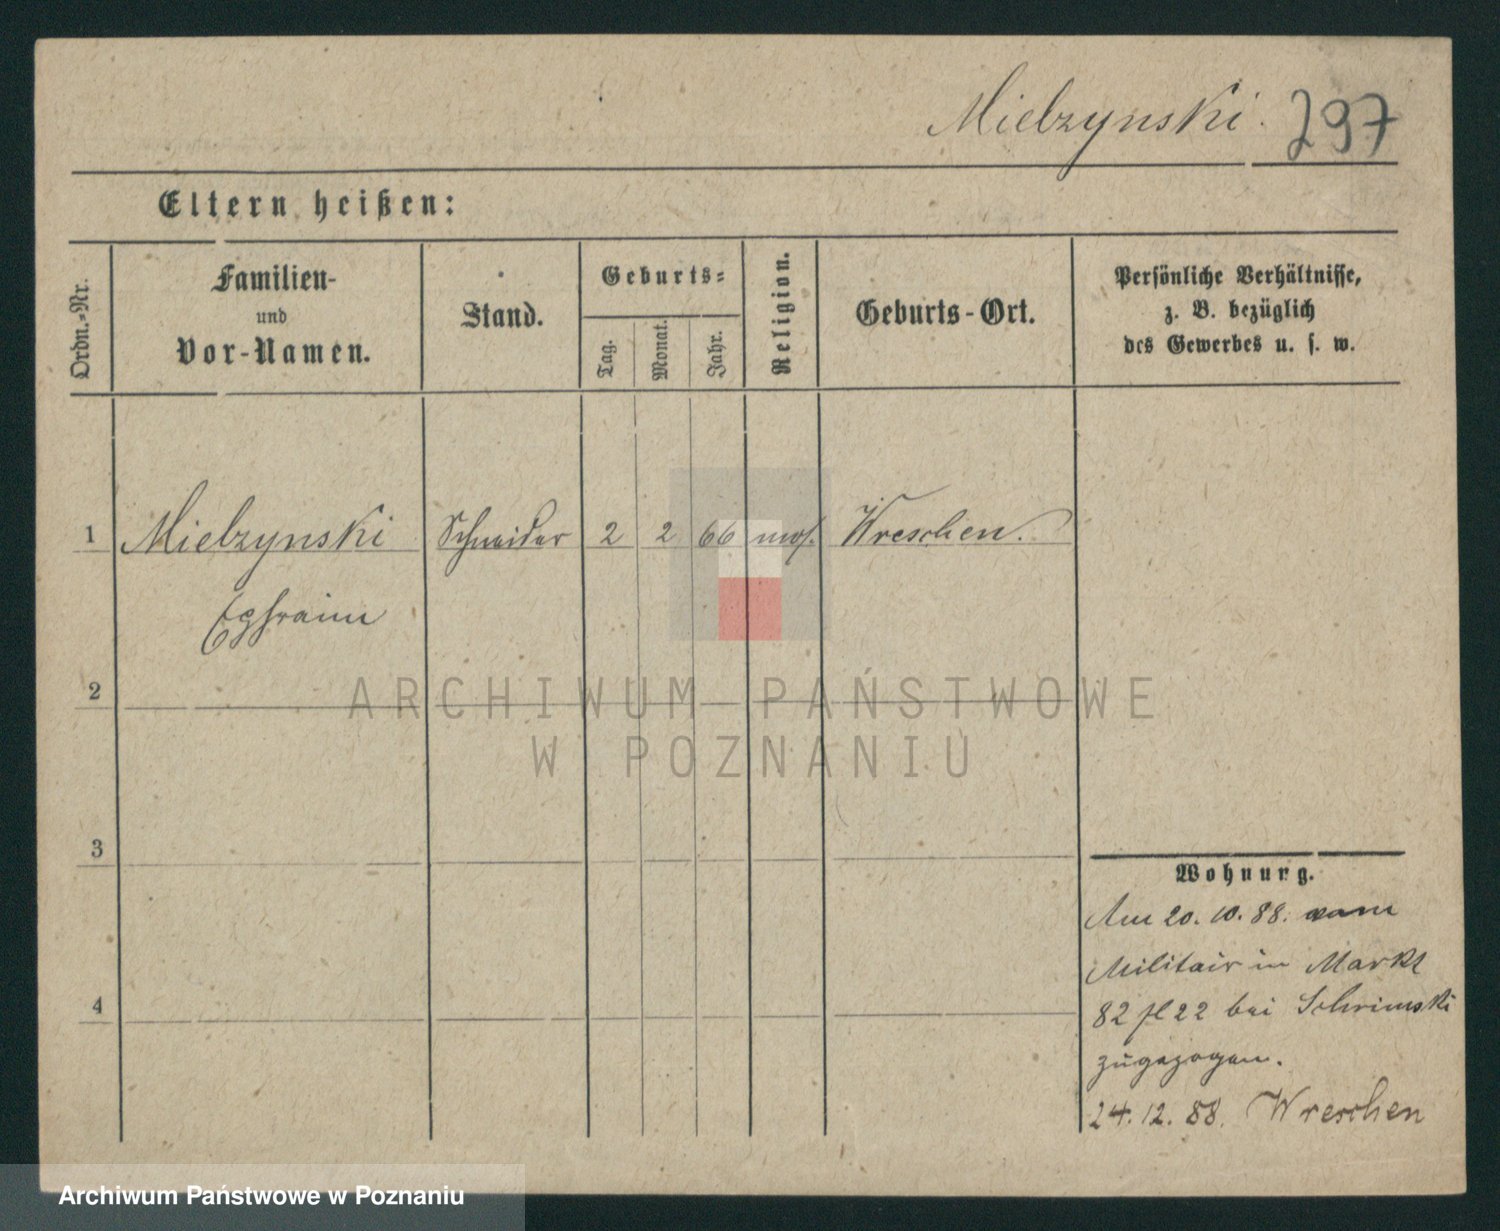 Mielzynski. 297
Eltern heißen:
Ordn.-Nr.
Familien-
und
Vor-Namen.
Stand.
Geburts-
Tag.
Monat.
Jahr.
Religion.
Geburts-Ort.
Persönliche Verhältnisse,
z. B. bezüglich
des Gewerbes u. s. w.
1 Mielzynski Schneider 2 2 66 mos. Wreschen.
Ephraim
2
3
4
ARCHIWUM PAŃSTWOWE
W POZNANIU
Wohnung.
Am 20. 10. 88. vom
Militair in Markt
82 bei Schrimski
zugezogen.
24. 12. 88. Wreschen
Archiwum Państwowe w Poznaniu